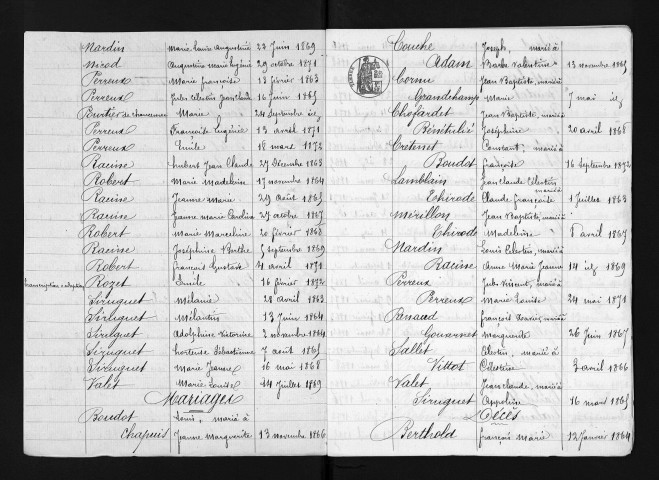 Mardin Marie Louise Augustine 23 Juin 1869
Mirod Augustine Marie Eugénie 29 octobre 1871
Perreux Marie Françoise 13 février 1863
Perreux Jules Célestin Jean Claude 16 Juin 1865
Marie 24 septembre id
Perreux Françoise Eugénie 13 avril 1871
Perreux Emile 18 mars 1872
Racine hubert Jean Claude 27 Décembre 1863
Robert Marie Madeleine 17 novembre 1864
Racine Jeanne Marie 29 août 1865
Racine Jeanne Marie Caroline 27 octobre 1867
Robert Marie Marceline 20 février 1868
Racine Joséphine Berthe 5 septembre 1869
Robert François Gustave 4 avril 1871
transcription d'adoption Rozet Emile 16 février 1872
Siruguet Mélanie 28 avril 1863
Siruguet Mélantin 13 Juin 1864
Siruguet Adolphine Victorine 2 novembre 1864
Siruguet hortense Sébastienne 7 août 1865
Siruguet Marie Jeanne 16 mai 1868
Valet Marie Louise 14 Juillet 1869
Mariages
Boudot Louis, marié à
Chapuis Jeanne Marguerite 13 novembre 1866
Couche Joseph, marié à
Adam Barbe Valentine 13 novembre 1865
Cornu Jean Baptiste, marié à
Grandchamp Marie 7 mai id
Chofardet Jean Baptiste, marié à
Joséphine 20 avril 1868
Cretenet Constant, marié à
Boudot Françoise 16 septembre 1872
Lamblain Jean Claude Célestin marié à
Thirode Claude Françoise 1 Juillet 1863
Mérillon Jean Baptiste, marié à
Thirode Madeleine 8 avril 1867
Mardin Louis Célestin, marié à
Racine Anne Marie Jeanne 14 id 1869
Perreux Jules Vincent, marié à
Perreux Marie Louise 24 mai 1871
Renaud François Xavier, marié à
Gouvernet Marguerite 26 Juin 1867
Sallet Célestin, marié à
Vittot Célestine 2 avril 1866
Valet Jean Claude, marié à
Siruguet Appoline 16 mars 1865
Décès
Berthold François Marie 12 Janvier 1864